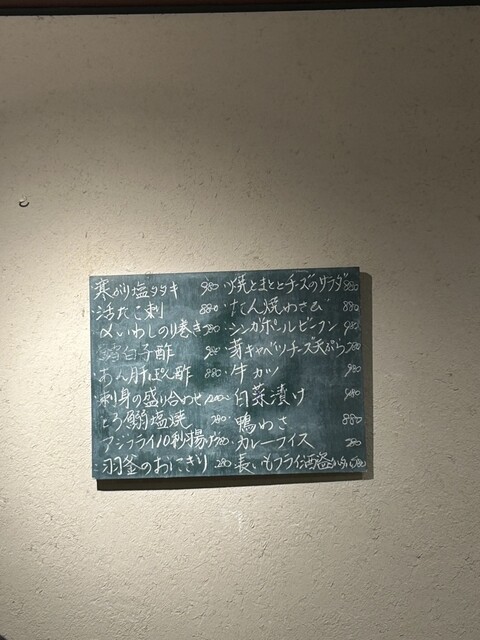 寒ぶり塩タタキ 980
活たこ刺 880
〆いわしのり巻き 780
白子酢
あん肝ぽん酢 880
刺身の盛り合わせ
とろ鰯塩焼 780
アジフライ10秒揚げ 780
羽釜のおにぎり 280
・焼とまととチーズのサラダ 880
・たん焼わさび 880
・シンガポールビーフン 980
・芽キャベツチーズ天ぷら 780
・牛カツ 980
・白菜漬け 480
・鴨わさ 880
・カレーライス 780
・長いもフライ